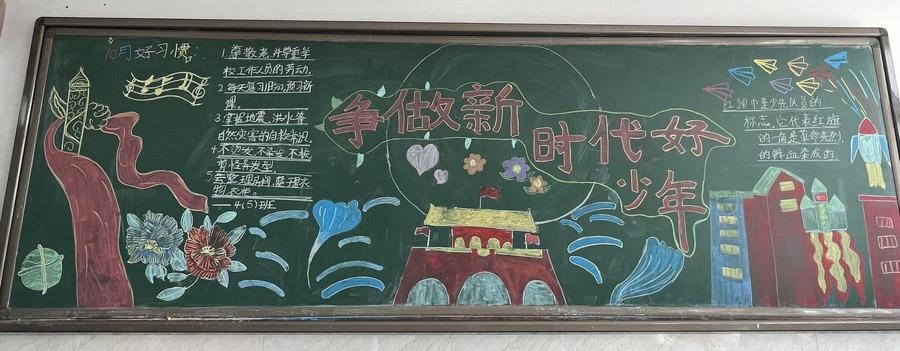 10月好习惯:
1.尊敬老师,尊重学
校工作人员的劳动。
2.每天复习旧知,预习新
课。
3.掌握地震、洪水等
自然灾害的自救常识。
4.不烫发、不染发、不梳
剪怪异发型。
5.会整理房间,整理衣
物、衣柜。
——4(5)班
争做新
时代好
少年
红领巾是少先队员的
标志,它代表红旗
的一角,是革命先烈
的鲜血染成的